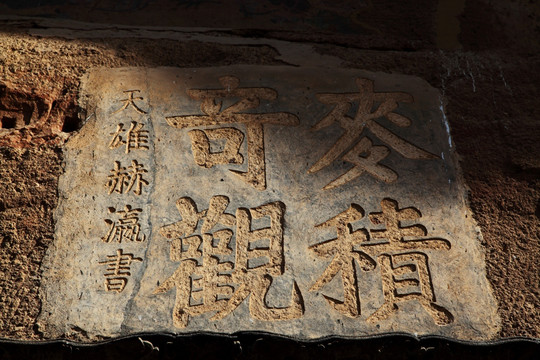 麥積
奇觀
天雄赫瀛書